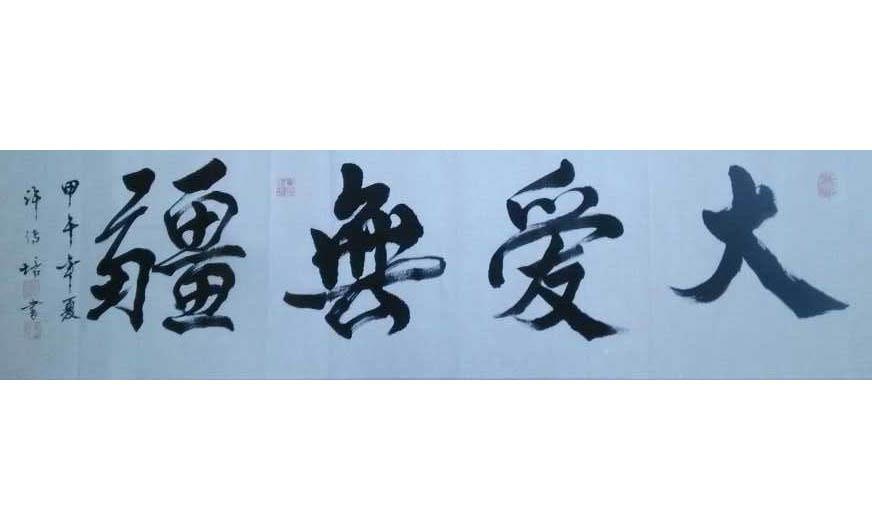 大爱無疆
甲午年夏
许传培书